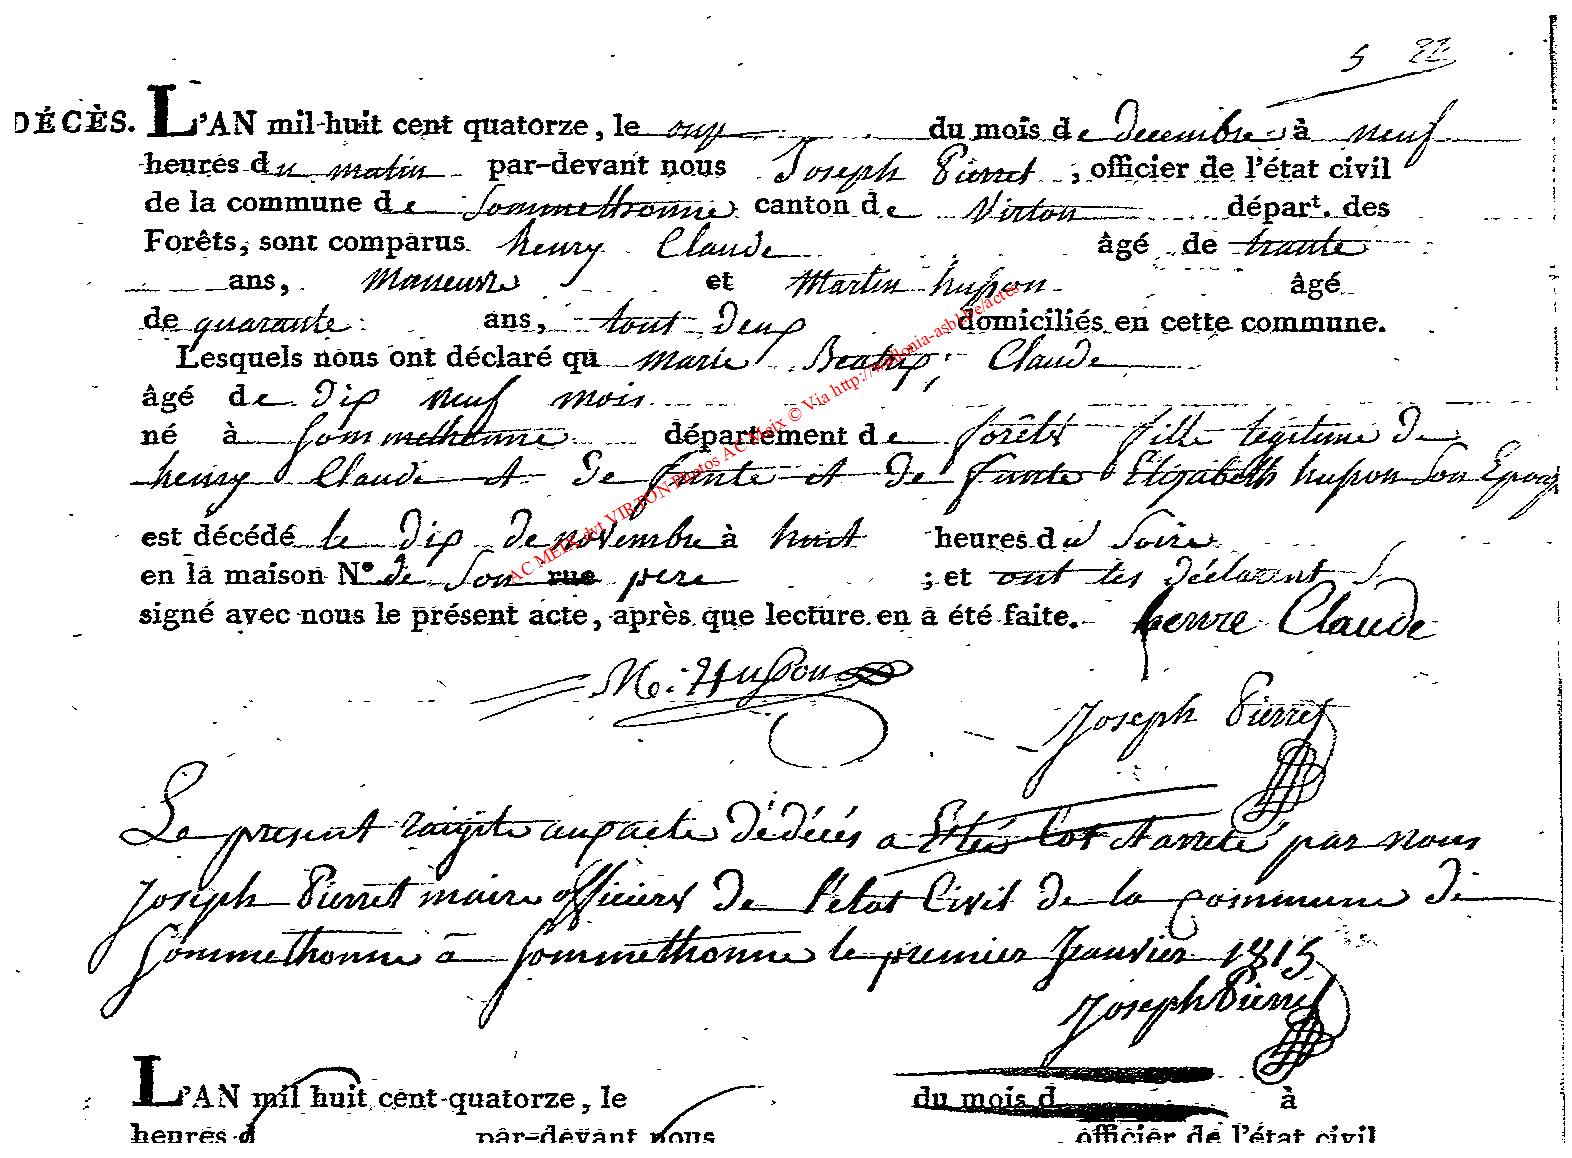 5 22
DÉCÈS. L'AN mil-huit cent quatorze, le onze du mois de decembre à neuf
heures du matin par-devant nous Joseph Pierret ; officier de l'état civil
de la commune de Sommethonne canton de Virton départ. des
Forêts, sont comparus henry Claude âgé de trante
ans, Maneuvre et Martin husson âgé
de quarante ans, tout deux domiciliés en cette commune.
Lesquels nous ont déclaré qu marie Beatrix Claude
âgé de dix neuf mois
né à Sommethonne département de forêts fille légitime de
henry Claude et de funte et de funte Elizabeth husson son Epouze
est décédé le dix de novembre à huit heures du Soire
en la maison N° de Son rue pere ; et ont les déclarent
signé avec nous le présent acte, après que lecture en a été faite. henre Claude
M. Husson
Joseph Pierret
Le present aux acte dédécés a Etéis Clot et arreté par nous
Joseph Pierret maire officiers De l'état Civil De la Commune de
Sommethonne a Sommethonne le premier Janvier 1815
Joseph Pierret
L'AN mil huit cent quatorze, le du mois d à
heures d par-devant nous officier de l'état civil
AC MEIX dvt VIRTON Photos AC Meix © Via http://wallonia-asbl.be/actes